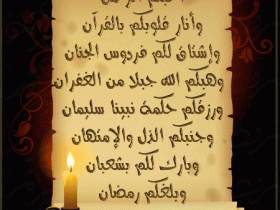 وأنار قلوبكم بالقرآن
وإشتاق لكم فردوس الجنان
وهبكم الله جبلا من الغفران
ورزقكم حكمة نبينا سليمان
وجنبكم الذل والإمتهان
وبارك لكم بشعبان
وبلغكم رمضان